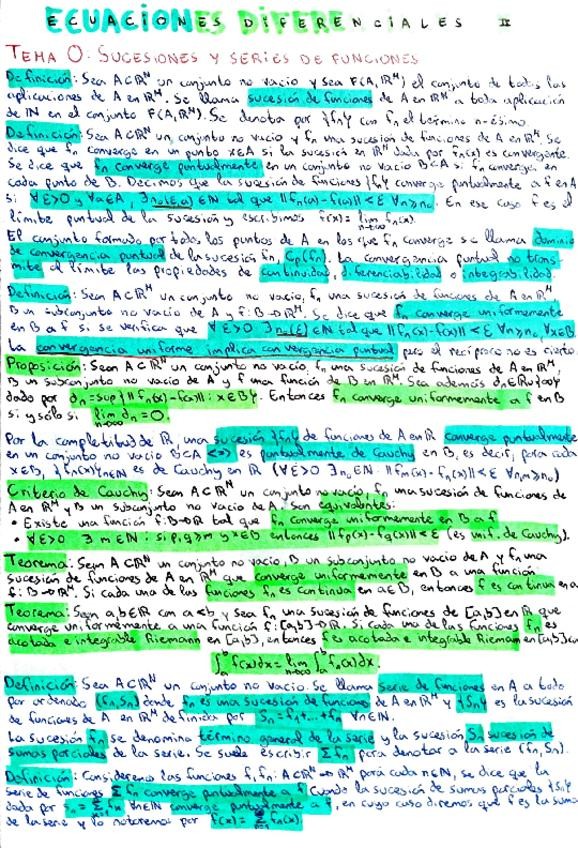 ECUACIONES DIFERENCIALES II
TEMA 0. SUCESIONES Y SERIES DE FUNCIONES
Definición: Sea A⊂ℝᴺ un conjunto no vacío y sea F(A,ℝᴹ) el conjunto de todas las
aplicaciones de A en ℝᴹ. Se llama sucesión de funciones de A en ℝᴹ a toda aplicación
de ℕ en el conjunto F(A,ℝᴹ). Se denota por {fₙ} con fₙ el término n-ésimo.
Definición: Sea A⊂ℝᴺ un conjunto no vacío y fₙ una sucesión de funciones de A en ℝᴹ. Se
dice que fₙ converge en un punto x∈A si la sucesión en ℝᴹ dada por fₙ(x) es convergente.
Se dice que fₙ converge puntualmente en un conjunto no vacío B⊂A si fₙ converge en
cada punto de B. Decimos que la sucesión de funciones {fₙ} converge puntualmente a f en A
si ∀ε>0 y ∀a∈A, ∃n₀(ε,a)∈ℕ tal que ||fₙ(a)-f(a)||<ε ∀n≥n₀. En ese caso f es el
límite puntual de la sucesión y escribimos f(x)=lim n→∞ fₙ(x).
El conjunto formado por todos los puntos de A en los que fₙ converge se llama dominio
de convergencia puntual de la sucesión fₙ, Cp(fₙ). La convergencia puntual no trans-
mite al límite las propiedades de continuidad, diferenciabilidad o integrabilidad.
Definición: Sean A⊂ℝᴺ un conjunto no vacío, fₙ una sucesión de funciones de A en ℝᴹ
B un subconjunto no vacío de A y f:B→ℝᴹ. Se dice que fₙ converge uniformemente
en B a f si se verifica que ∀ε>0 ∃n₀(ε)∈ℕ tal que ||fₙ(x)-f(x)||<ε ∀n≥n₀, ∀x∈B
La convergencia uniforme implica convergencia puntual pero el recíproco no es cierto.
Proposición: Sean A⊂ℝᴺ un conjunto no vacío, fₙ una sucesión de funciones de A en ℝᴹ,
B un subconjunto no vacío de A y f una función de B en ℝᴹ. Sea además dₙ∈ℝ∪{∞}
dado por dₙ=sup{||fₙ(x)-f(x)||: x∈B}. Entonces fₙ converge uniformemente a f en B
si y sólo si lim n→∞ dₙ=0.
Por la completitud de ℝ, una sucesión {fₙ} de funciones de A en ℝ converge puntualmente
en un conjunto no vacío B⊂A <=> es puntualmente de Cauchy en B, es decir, para cada
x∈B, {fₙ(x)}n∈ℕ es de Cauchy en ℝ (∀ε>0 ∃n₀∈ℕ: ||fₘ(x)-fₙ(x)||<ε ∀n,m≥n₀)
Criterio de Cauchy: Sean A⊂ℝᴺ un conjunto no vacío, fₙ una sucesión de funciones de
A en ℝᴹ y B un subconjunto no vacío de A. Son equivalentes:
• Existe una función f:B→ℝ tal que fₙ converge uniformemente en B a f
• ∀ε>0 ∃m∈ℕ : si p,q≥m y x∈B entonces ||fp(x)-fq(x)||<ε (es unif. de Cauchy).
Teorema: Sean A⊂ℝᴺ un conjunto no vacío, B un subconjunto no vacío de A y fₙ una
sucesión de funciones de A en ℝᴹ que converge uniformemente en B a una función
f:B→ℝᴹ. Si cada una de las funciones fₙ es continua en a∈B, entonces f es continua en a.
Teorema: Sean a,b∈ℝ con a<b y sea fₙ una sucesión de funciones de [a,b] en ℝ que
converge uniformemente a una función f:[a,b]→ℝ. Si cada una de las funciones fₙ es
acotada e integrable Riemann en [a,b], entonces f es acotada e integrable Riemann en [a,b] con
∫ₐᵇ f(x)dx = lim n→∞ ∫ₐᵇ fₙ(x)dx.
Definición: Sea A⊂ℝᴺ un conjunto no vacío. Se llama serie de funciones en A a todo
par ordenado (fₙ,Sₙ) donde fₙ es una sucesión de funciones de A en ℝᴹ y {Sₙ} es la sucesión
de funciones de A en ℝᴹ definida por Sₙ=f₁+...+fₙ ∀n∈ℕ.
La sucesión fₙ se denomina término general de la serie y la sucesión Sₙ sucesión de
sumas parciales de la serie. Se suele escribir Σfₙ para denotar a la serie (fₙ,Sₙ).
Definición: Consideremos las funciones f,fₙ: A⊂ℝᴺ→ℝᴹ para cada n∈ℕ, se dice que la
serie de funciones Σfₙ converge puntualmente a f cuando la sucesión de sumas parciales {Sₙ}
dada por Sₙ=Σfₖ ∀n∈ℕ converge puntualmente a f, en cuyo caso diremos que f es la suma
de la serie y lo notaremos por f(x)=Σfₙ(x).